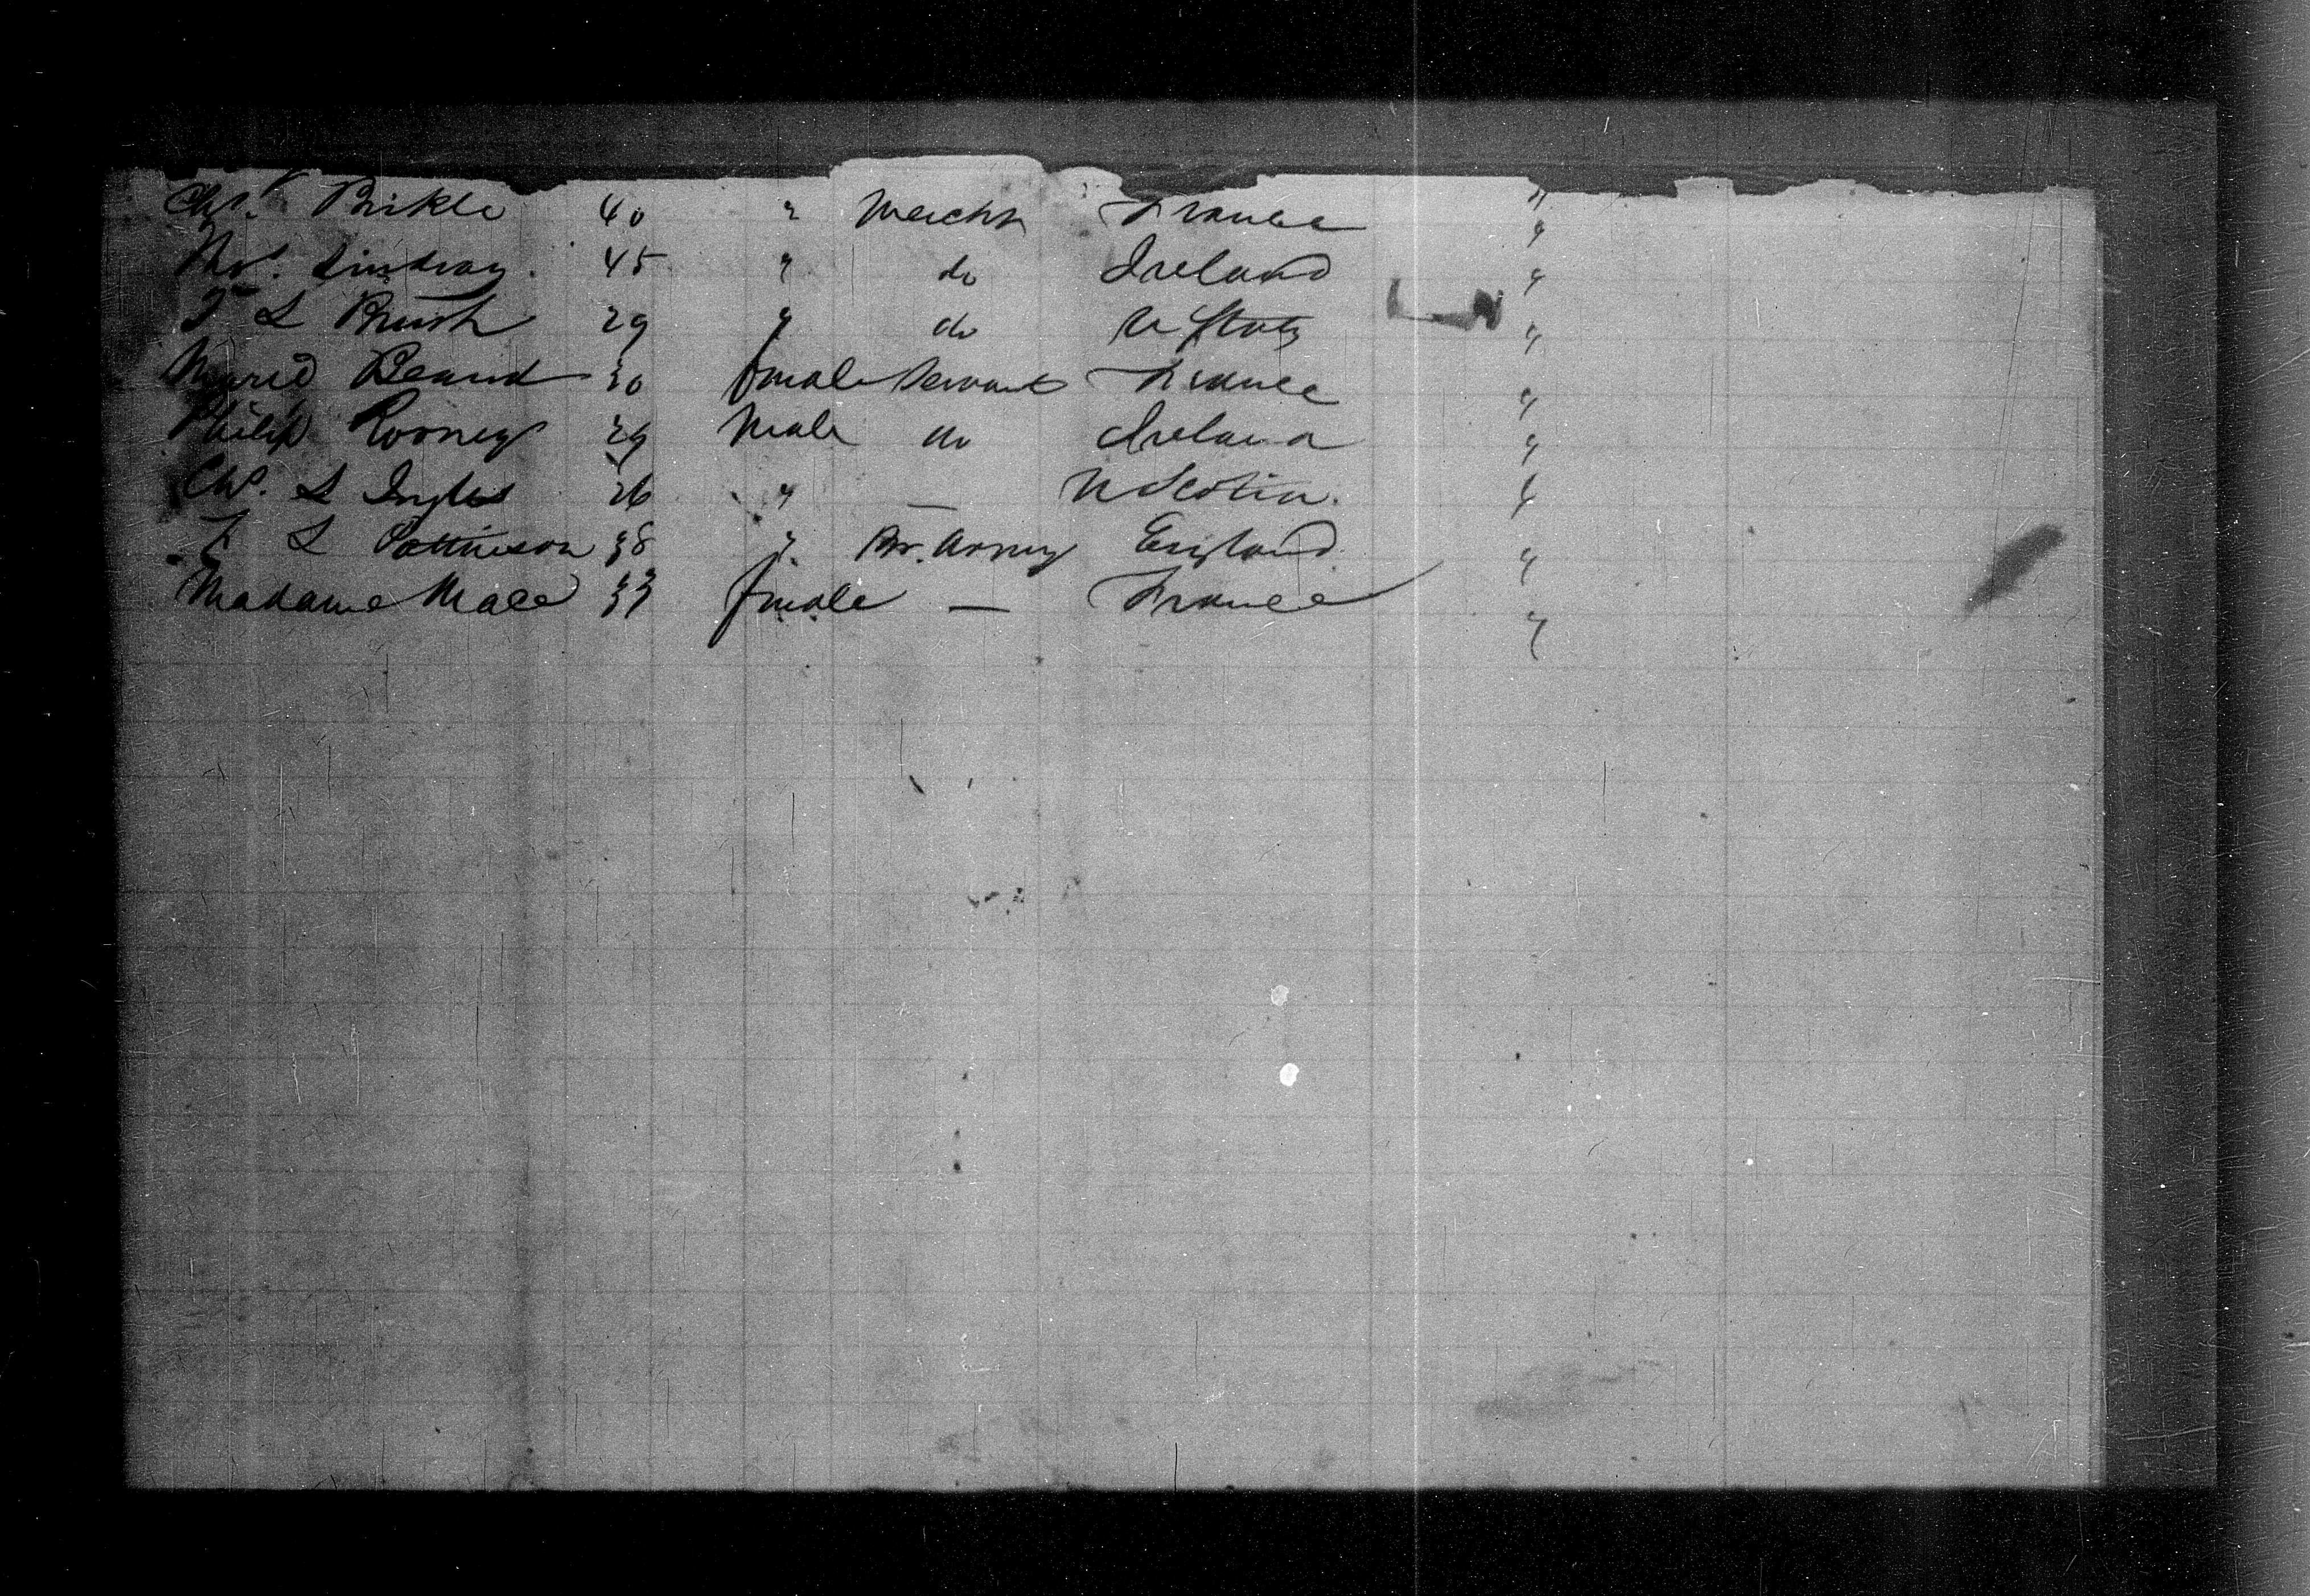 Chs. Brikle 40 " Mercht France "
Thos. Lindsay. 45 " do Ireland "
T L Brush 29 " do U States "
Marie Beaud 30 female Servant France "
Philip Rooney 29 Male do Ireland "
Chs. L Ingles 26 " — N Scotia. "
T L Pattinson 38 " Br. Army England "
Madame Mace 33 female — France "